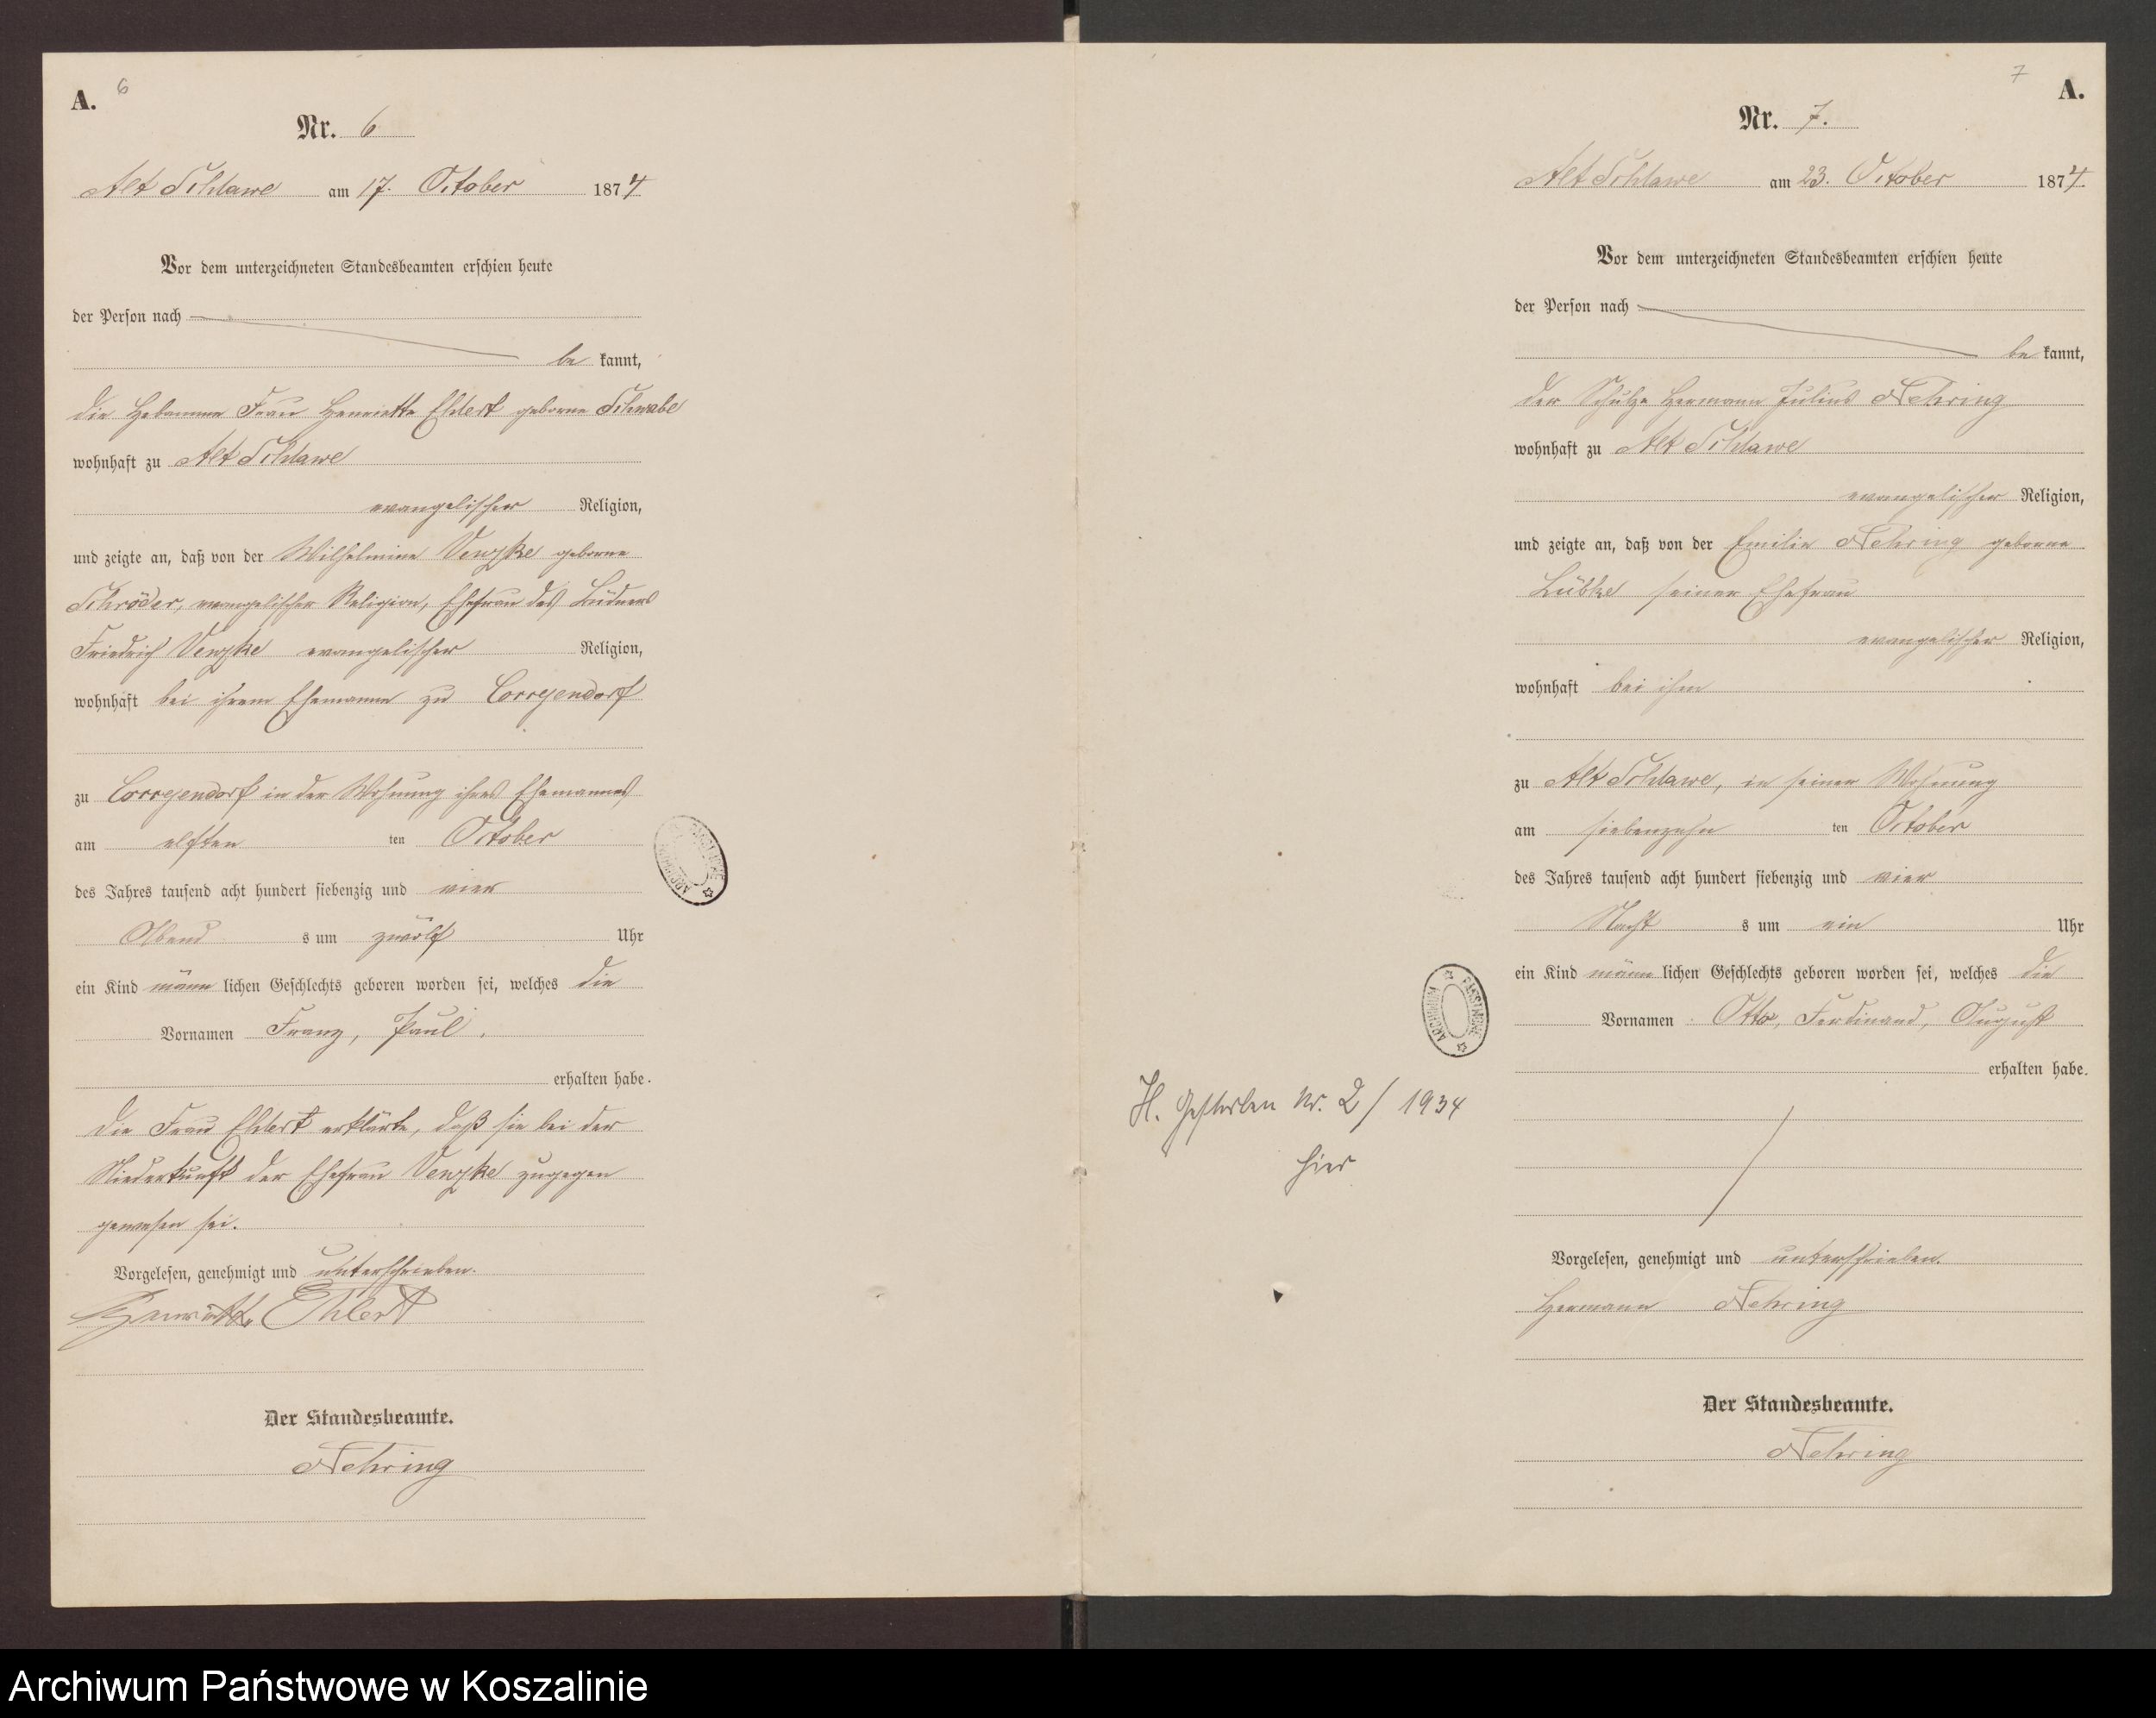 A. 6
Nr. 6
Alt Schlawe am 17. October 1874
Vor dem unterzeichneten Standesbeamten erschien heute
der Person nach
be kannt,
die Hebamme Frau Henriette Ehlert geborne Schwabe
wohnhaft zu Alt Schlawe
evangelischer Religion,
und zeigte an, daß von der Wilhelmine Venzke geborne
Schröder, evangelischer Religion, Ehefrau des Büdners
Friedrich Venzke evangelischer Religion,
wohnhaft bei ihrem Ehemanne zu Coccejendorf
zu Coccejendorf in der Wohnung ihres Ehemannes
am elften ten October
des Jahres tausend acht hundert siebenzig und vier
Abend s um zwölf Uhr
ein Kind männ lichen Geschlechts geboren worden sei, welches die
Vornamen Franz, Paul,
erhalten habe.
Die Frau Ehlert erklärte, daß sie bei der
Niederkunft der Ehefrau Venzke zugegen
gewesen sei.
Vorgelesen, genehmigt und unterschrieben.
Henriette Ehlert
Der Standesbeamte.
Nehring
7 A.
Nr. 7.
Alt Schlawe am 23. October 1874.
Vor dem unterzeichneten Standesbeamten erschien heute
der Person nach
be kannt,
der Schulze Hermann Julius Nehring
wohnhaft zu Alt Schlawe
evangelischer Religion,
und zeigte an, daß von der Emilie Nehring geborne
Lübke seiner Ehefrau
evangelischer Religion,
wohnhaft bei ihm
zu Alt Schlawe, in seiner Wohnung
am siebenzehn ten October
des Jahres tausend acht hundert siebenzig und vier
Nacht s um ein Uhr
ein Kind männ lichen Geschlechts geboren worden sei, welches die
Vornamen Otto, Ferdinand, August
erhalten habe.
H. Gestorben Nr. 2/1934
hier
Vorgelesen, genehmigt und unterschrieben.
Hermann Nehring
Der Standesbeamte.
Nehring
Archiwum Państwowe w Koszalinie